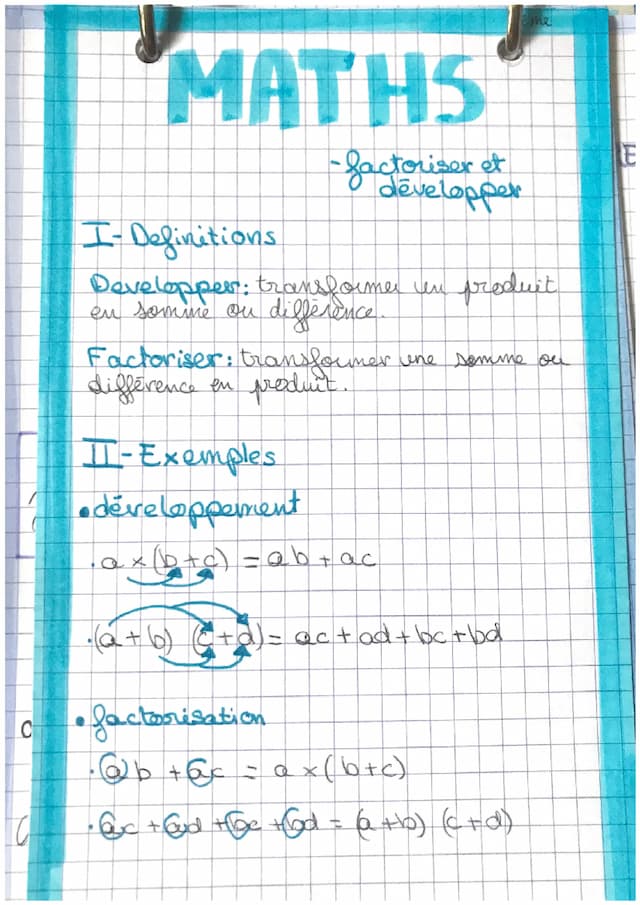 MATHS
- factoriser et
développer
I - Definitions
Developper : transformer un produit
en somme ou différence.
Factoriser : transformer une somme ou
différence en produit.
II - Exemples
• développement
. a × (b + c) = ab + ac
. (a + b) (c + d) = ac + ad + bc + bd
• factorisation
. ab + ac = a × (b + c)
. ac + ad + bc + bd = (a + b) (c + d)